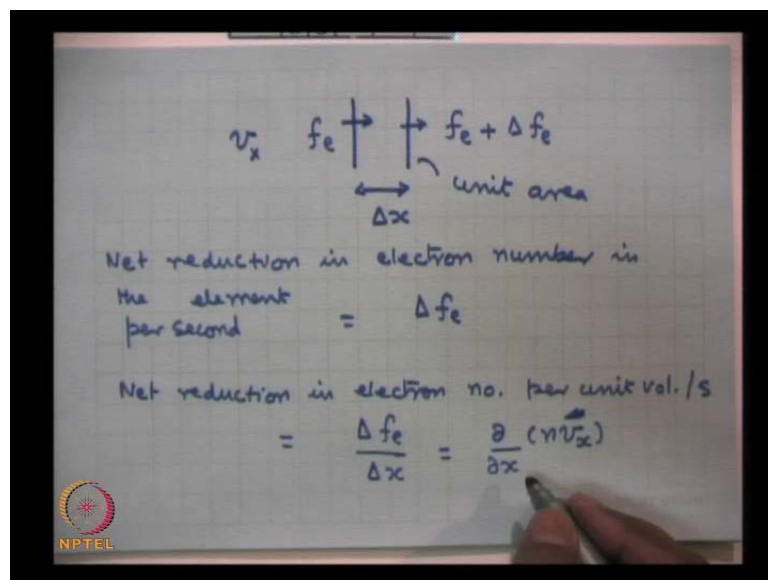 v_x f_e → → f_e + Δf_e
unit area
Δx
Net reduction in electron number in
the element
per second = Δf_e
Net reduction in electron no. per unit vol./s
= Δf_e / Δx = ∂/∂x (n v_x)
NPTEL